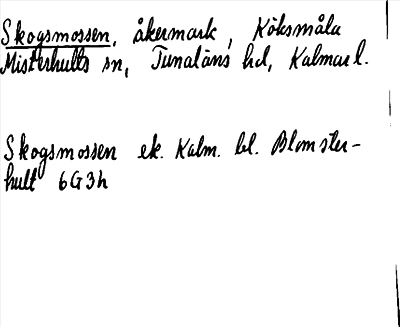 Skogsmossen, åkermark, Köksmåla
Misterhults sn, Tunaläns hd, Kalmar l.
Skogsmossen ek. Kalm. bl. Blomster-
hult 6G3h